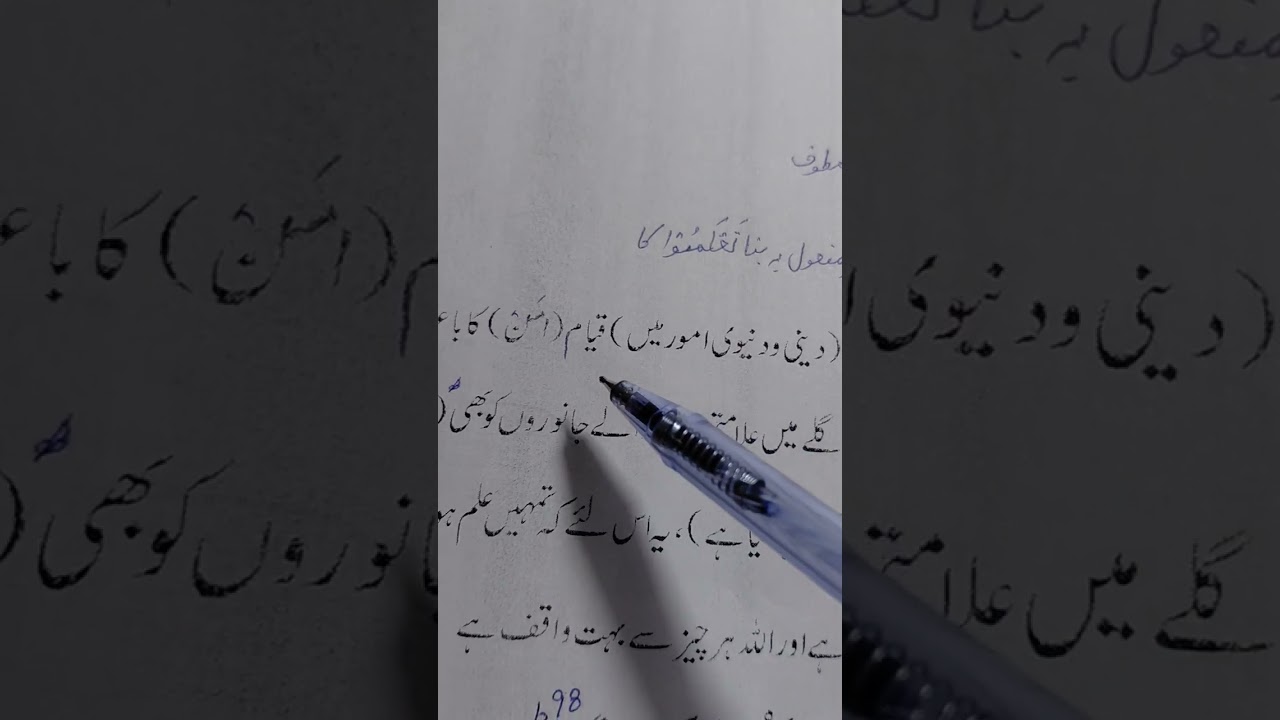 مفعول بہ بنا تَعْلَمُوْا کا
(دینی و دنیوی امور میں) قیام (امن) کا
گلے میں والے جانوروں کو بھی (
ہے)، یہ اس لئے کہ تمہیں علم
ہے اور اللہ ہر چیز سے بہت واقف ہے
98